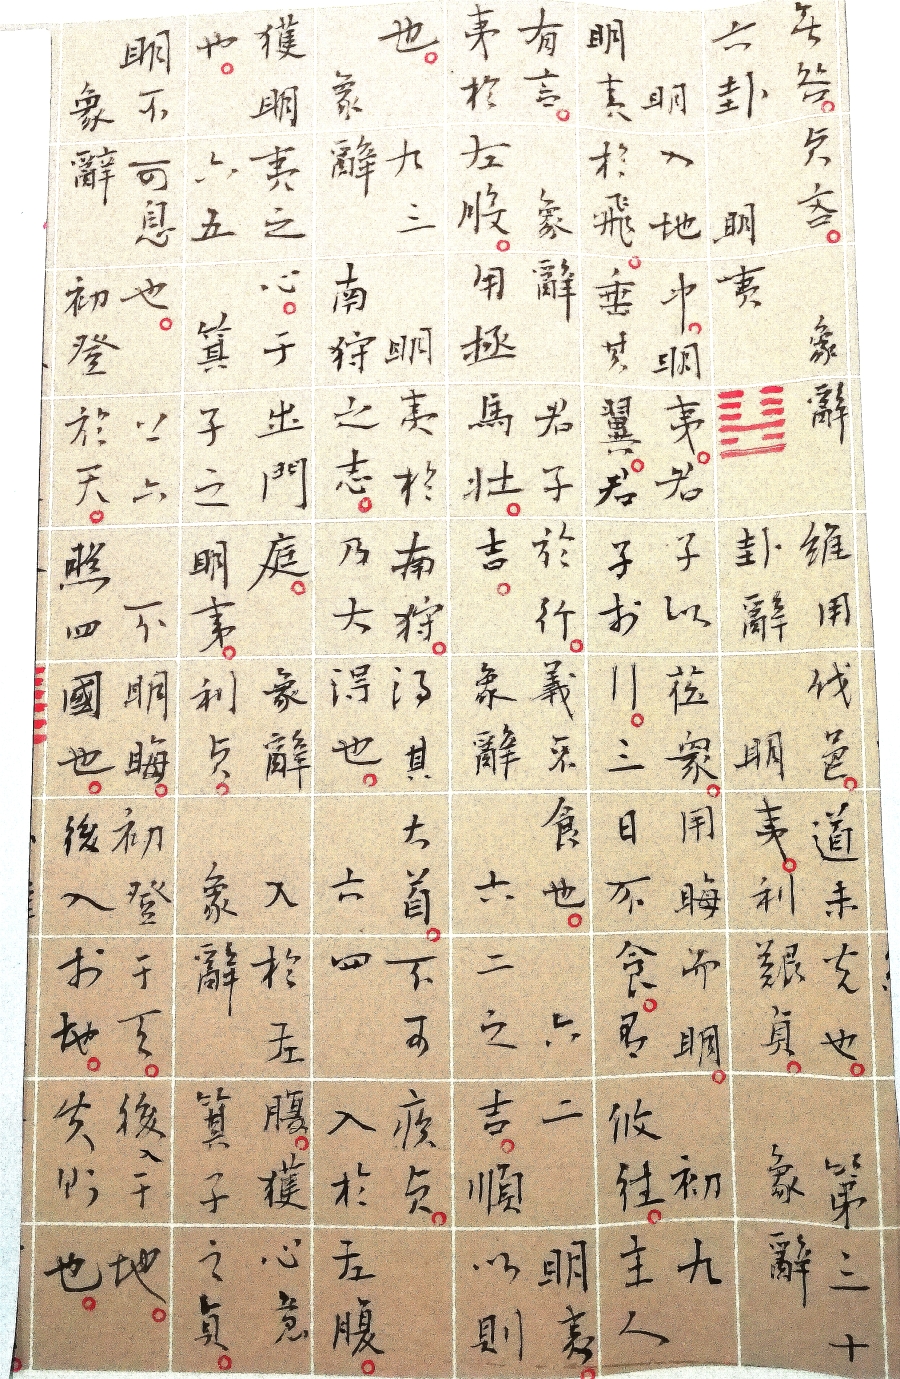 无咎。贞吝。 象辭 維用伐邑。道未光也。 第三十
六卦 明夷 卦辭 明夷。利艱貞。 象辭
明入地中。明夷。君子以莅衆。用晦而明。 初九
明夷於飛。垂其翼。君子於行。三日不食。有攸往。主人
有言。 象辭 君子於行。義不食也。 六二 明夷。
夷於左股。用極馬壯。吉。 象辭 六二之吉。順以則
也。 九三 明夷於南狩。得其大首。不可疾贞。
象辭 南狩之志。乃大得也。 六四 入於左腹。
獲明夷之心。于出門庭。 象辭 入於左腹。獲心意
也。 六五 箕子之明夷。利贞。 象辭 箕子之貞。
明不可息也。 上六 不明晦。初登于天。後入于地。
象辭 初登於天。照四國也。後入於地。失則也。